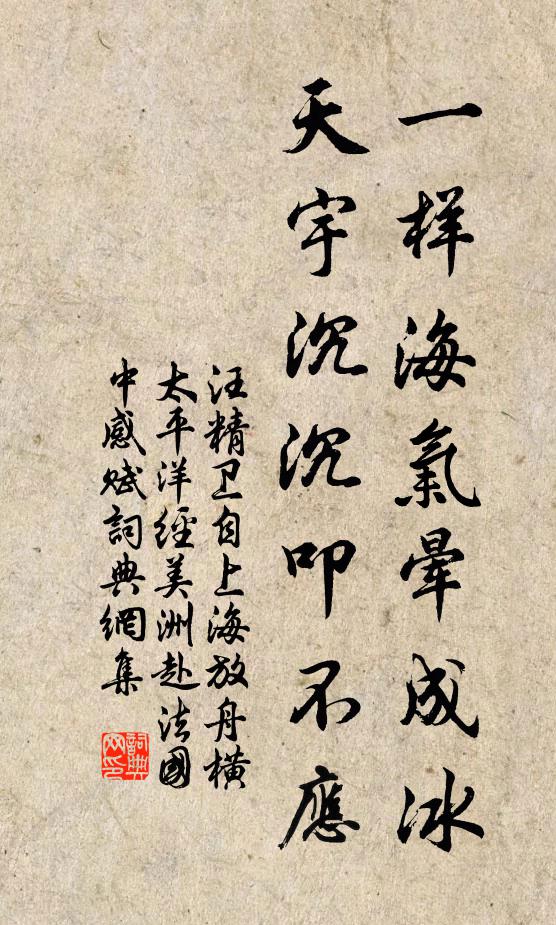 一样海氣暈成冰
天宇沉沉叩不應
汪精卫自上海放舟橫
太平洋經美洲赴法國
中感赋詞典網集
詞典网印